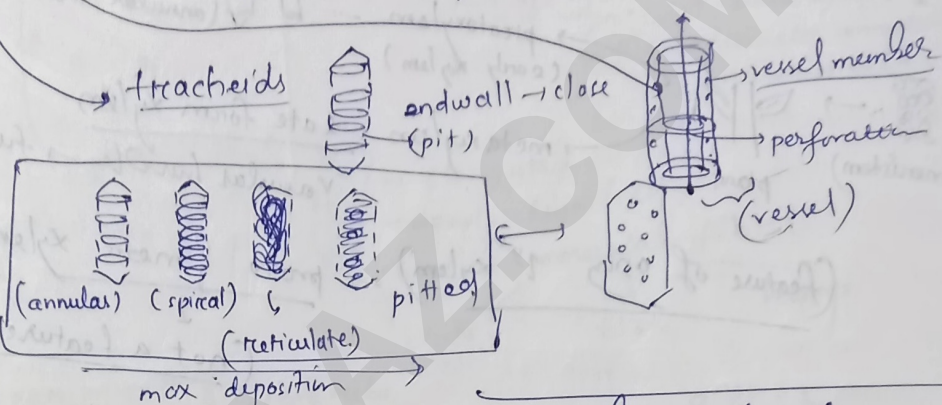 tracheids
endwall → close
(pit)
→ vessel member
→ perforation
(vessel)
(annular) (spiral) (reticulate) pitted
max deposition